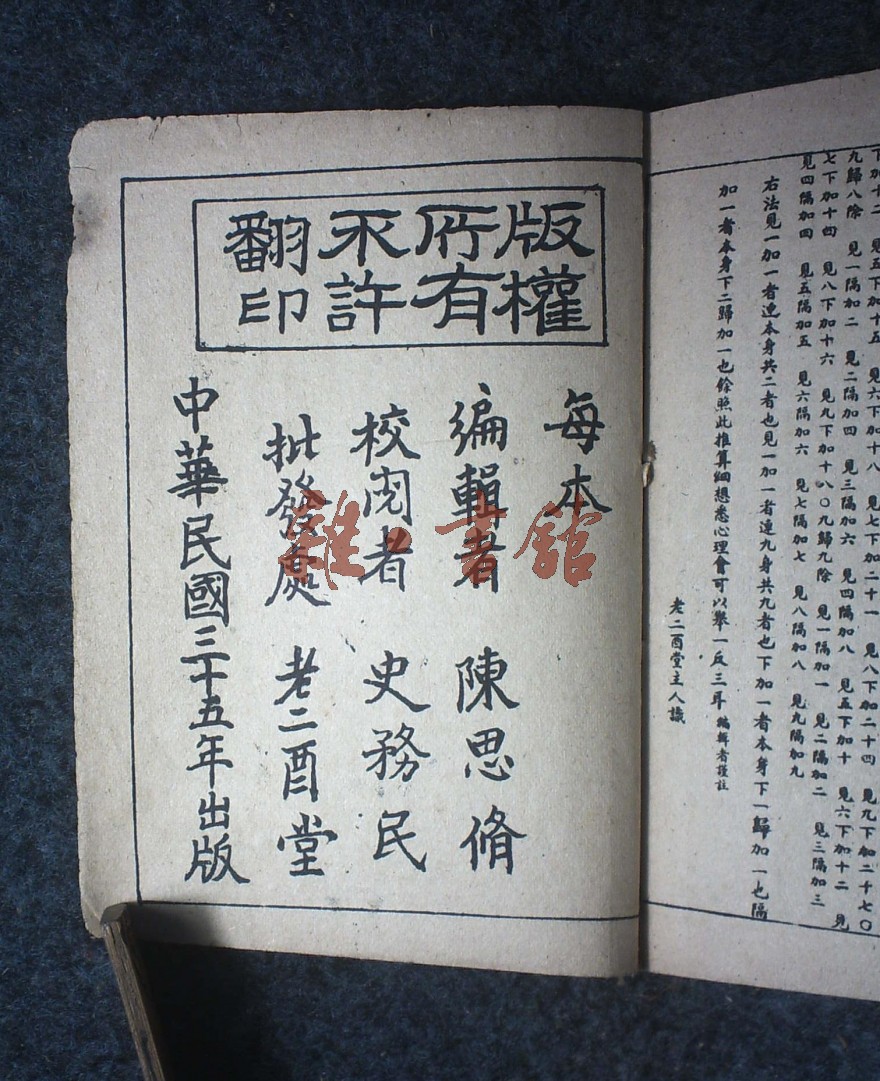 下加十二　見五下加十五　見六下加十八　見七下加二十一　見八下加二十四　見九下加二十七○
九歸八除　見一隔加二　見二隔加四　見三隔加六　見四隔加八　見五下加十　見六下加十二　見
七下加十四　見八下加十六　見九下加十八○九歸九除　見一隔加一　見二隔加二　見三隔加三
見四隔加四　見五隔加五　見六隔加六　見七隔加七　見八隔加八　見九隔加九
右法見一加一者連本身共二者也見一加一者連九身共九者也下加一者本身下一歸加一也隔
加一者本身下二歸加一也餘照此推算細想悉心理會可以舉一反三耳　編輯者謹註
老二酉堂主人識
版權
所有
不許
翻印
每本
編輯者　陳思脩
校閱者　史務民
批發處　老二酉堂
中華民國三十五年出版
雜·書館